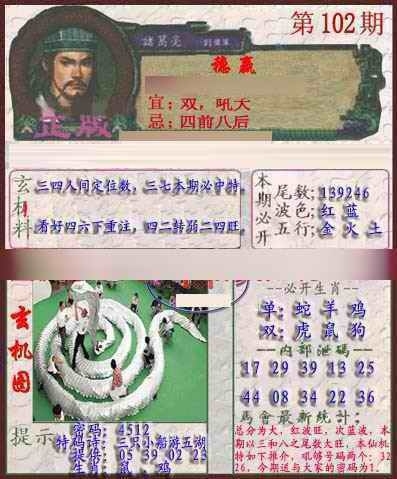 第102期
諸葛亮
劉伯溫
稳赢
宜：双，吼大
忌：四前八后
正版
玄材料
三四人间定位数，三七本期必中特。
看好四六下重注，四二转弱二四旺。
本期必开
尾数；139246
波色；红 蓝
五行；金 火 土
玄机图
必开生肖
单：蛇 羊 鸡
双：虎 鼠 狗
内部泄码
17 29 39 13 25
44 08 34 22 36
馬會最新統計：
总分为大，红波旺，次蓝波，本
期以三和八之尾数大旺，本仙机
特如下推介，吼够号码两个：32
26，今期送与大家的密码为1.
提示
密码：4512
特码诗：三只小船游五湖
提供：05 39 02 23
生肖：鼠 、鸡